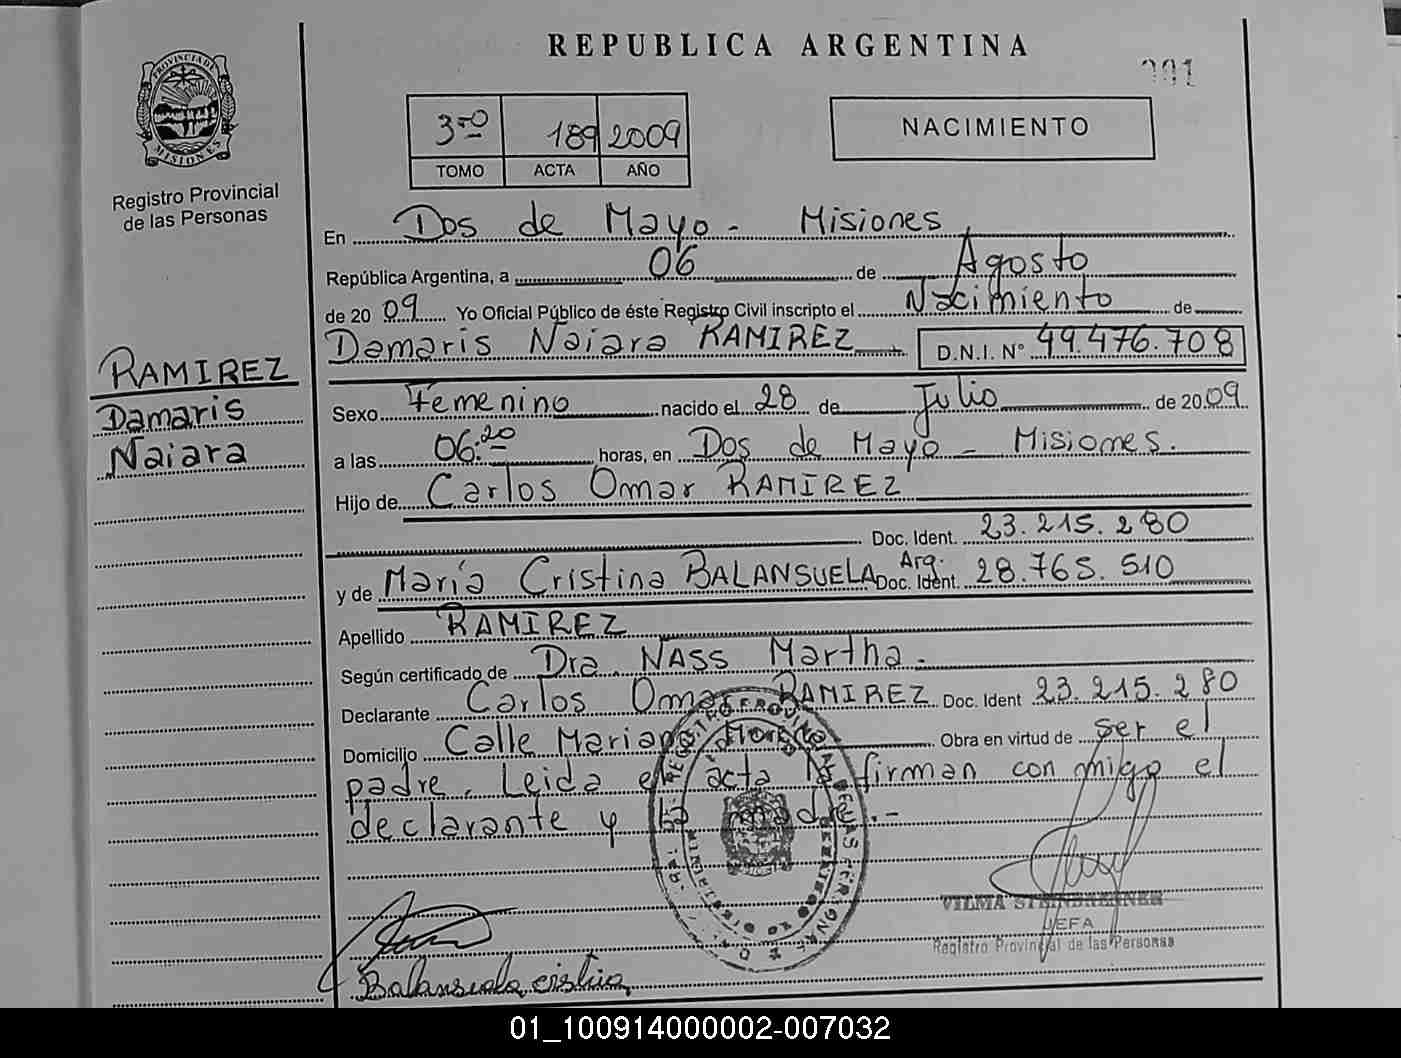 REPUBLICA ARGENTINA
PROVINCIA DE
MISIONES
Registro Provincial
de las Personas
3ro 189 2009
TOMO ACTA AÑO
NACIMIENTO
En Dos de Mayo - Misiones
República Argentina, a 06 de Agosto
de 2009 Yo Oficial Público de éste Registro Civil inscripto el Nacimiento de
Damaris Naiara RAMIREZ D.N.I. N° 49.476.708
RAMIREZ
Damaris
Naiara
Sexo Femenino nacido el 28 de Julio de 2009
a las 06:20 horas, en Dos de Mayo - Misiones.
Hijo de Carlos Omar RAMIREZ
Doc. Ident. 23.215.280
y de María Cristina BALANSUELA Arg. Doc. Ident. 28.765.510
Apellido RAMIREZ
Según certificado de Dra. NASS Martha.
Declarante Carlos Omar RAMIREZ Doc. Ident 23.215.280
Domicilio Calle Mariano Obra en virtud de ser el
padre. Leida el acta la firman con migo el
declarante y la madre.-
VILMA STEINBRENNER
JEFA
Registro Provincial de las Personas
Balansuela
01_100914000002-007032